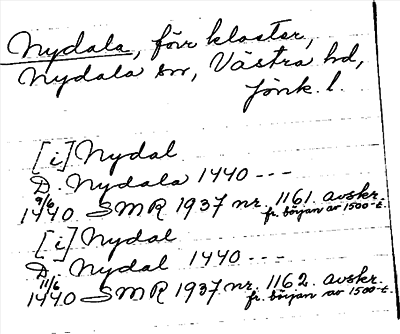 Nydala, förr kloster,
Nydala sn, Västra hd,
Jönk. l.
[i] Nydal
D. Nydala 1440 ---
9/6
1440 SMR 1937 nr. 1161. avskr.
fr. början av 1500-t.
[i] Nydal
D. Nydal 1440 ---
11/6
1440 SMR 1937 nr. 1162. avskr.
fr. början av 1500-t.